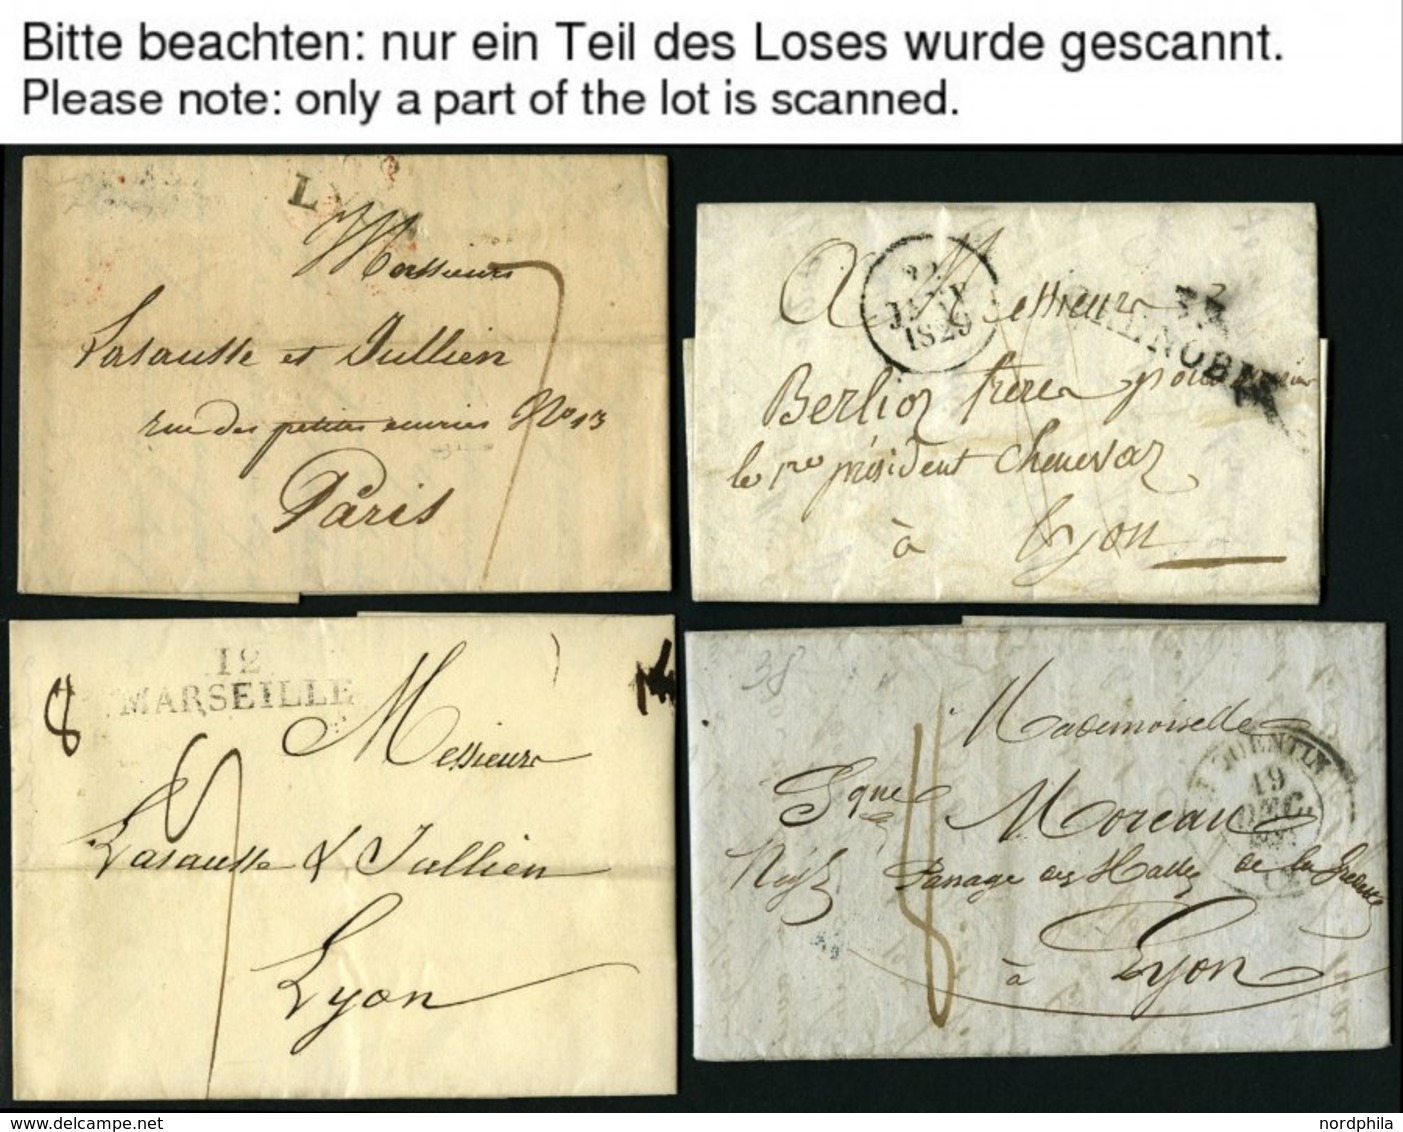 Bitte beachten: nur ein Teil des Loses wurde gescannt.
Please note: only a part of the lot is scanned.
L
Messieurs
Lasausse et Jullien
rue des petites écuries No 13
Paris
22
JANV
1829
A Messieurs
38
GRENOBLE
Berlioz frères pour
le 1er président Chenevaz
à Lyon
12
MARSEILLE
8
Messieurs
Lasausse & Jullien
Lyon
38
Mademoiselle
ST QUENTIN
19
DEC.
Moreau
Passage des Halles de la Grenette
à Lyon
www.delcampe.net
nordphila